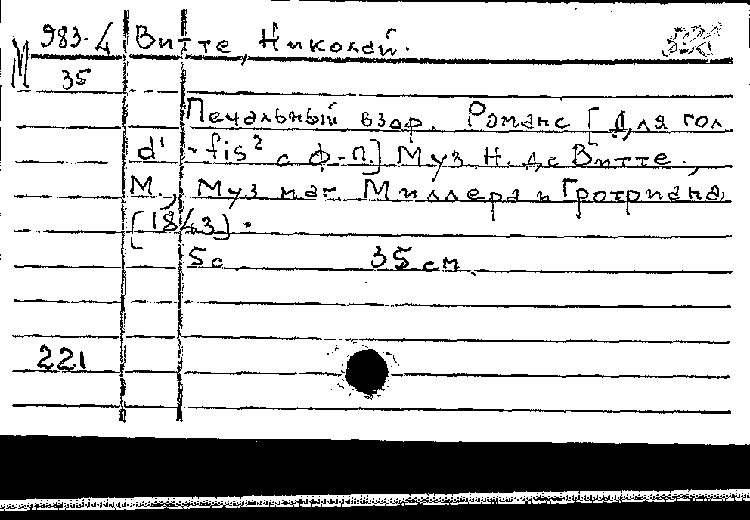 983-4 Витте, Николай.
М 35
Печальный взор. Романс [Для гол
d' - fis² с ф-п.] Муз Н. де Витте.,
М., Муз маг Миллера и Гротриана
[1843].
5с 35 см
221